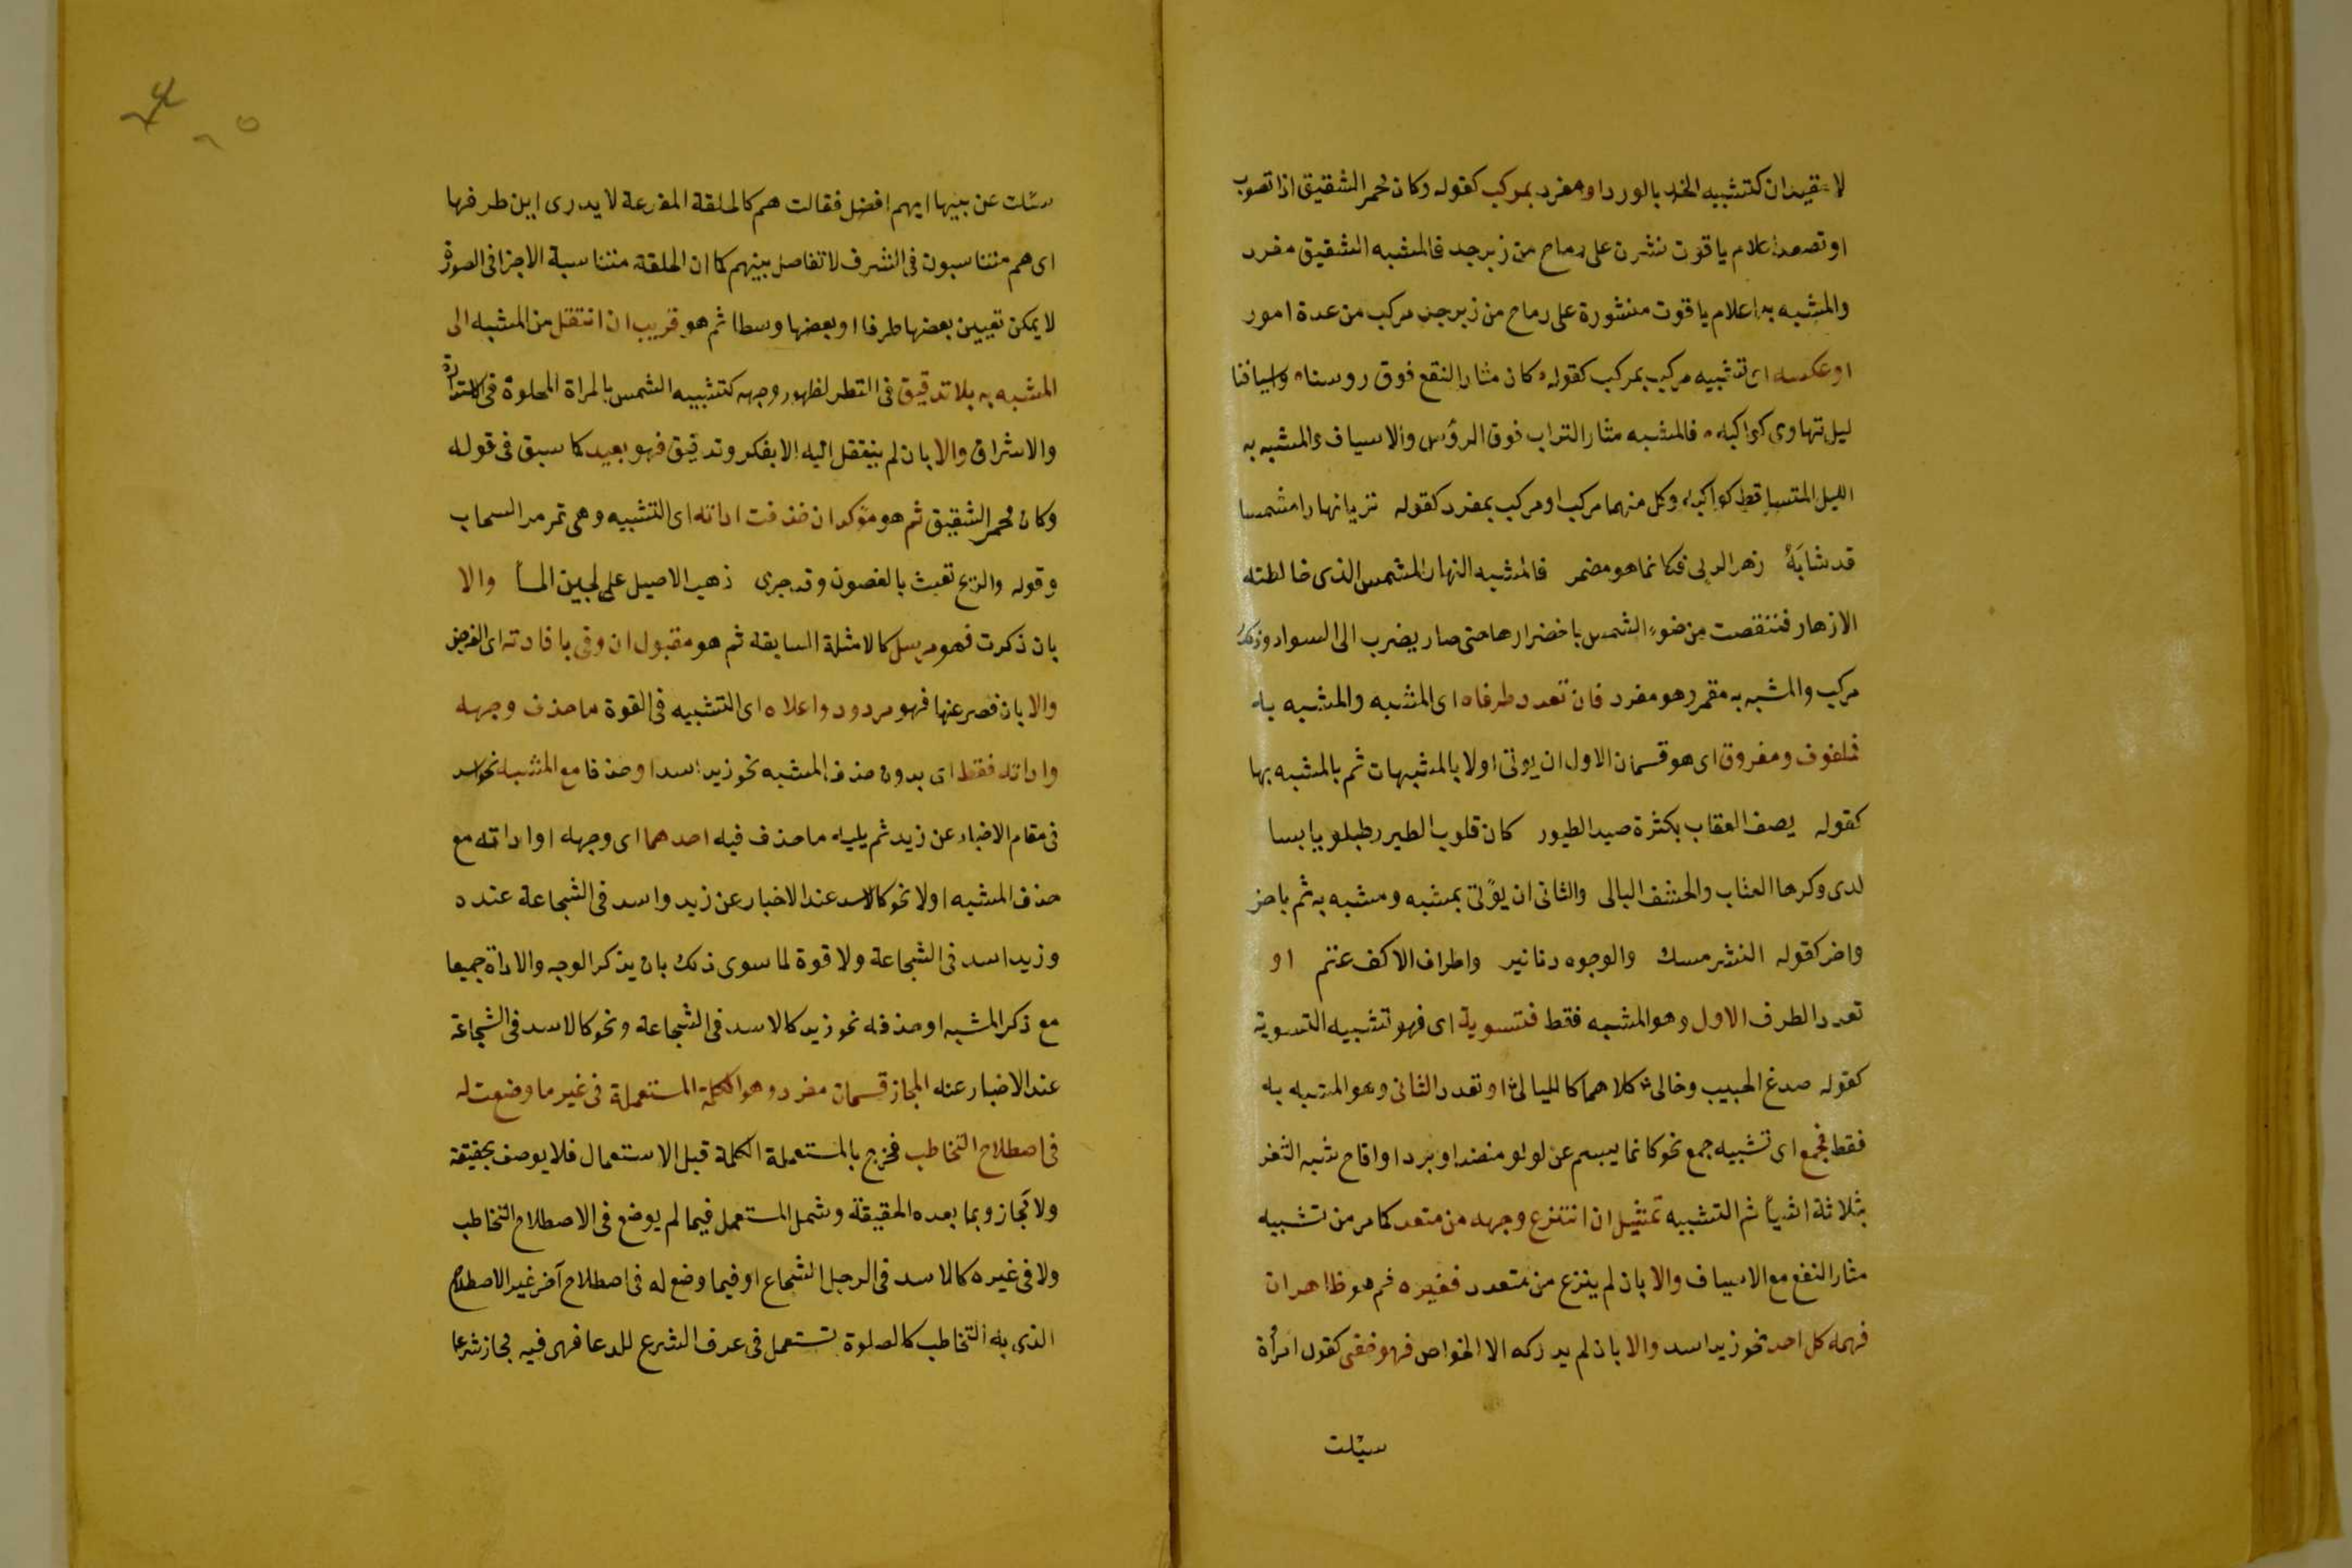 لا مقيدان كتشبيه الخد بالورد او مفرد بمركب كقوله وكان محمر الشقيق اذا تصوب
او تصعد اعلام ياقوت نشرن على رماح من زبرجد فالمشبه الشقيق مفرد
والمشبه به اعلام ياقوت منشورة على رماح من زبرجد مركب من عدة امور
او عكسه اى تشبيه مركب بمركب كقوله كان مثار النقع فوق روسنا واسيافنا
ليل تهاوى كواكبه فالمشبه مثار التراب فوق الرؤس والاسياف والمشبه به
الليل المتساقط كواكبه وكل منهما مركب او مركب بمفرد كقوله تريا نهارا مشمسا
قد شابَهُ زهر الربى فكانما هو مقمر فالمشبه النهار المشمس الذى خالطته
الازهار فنقصت من ضوء الشمس باخضرارها حتى صار يضرب الى السواد وذلك
مركب والمشبه به مقمر وهو مفرد فان تعدد طرفاه اى المشبه والمشبه به
فملفوف ومفروق اى هو قسمان الاول ان يوتى اولا بالمشبهات ثم بالمشبه بها
كقوله يصف العقاب بكثرة صيد الطيور كان قلوب الطير رطبا ويابسا
لدى وكرها العناب والحشف البالى والثانى ان يؤتى بمشبه ومشبه به ثم باخر
واخر كقوله النشر مسك والوجوه دنانير واطراف الاكف عنم او
تعدد الطرف الاول وهو المشبه فقط فتسوية اى فهو تشبيه التسوية
كقوله صدغ الحبيب وحالى كلاهما كالليالى او تعدد الثانى وهو المشبه به
فقط فجمع اى تشبيه جمع نحو كانما يبسم عن لولو منضد او برد او اقاح شبه الثغر
بثلاثة اشيأ ثم التشبيه تمثيل ان انتزع وجهه من متعدد كما مر من تشبيه
مثار النقع مع الاسياف والا بان لم ينزع من متعدد فغيره ثم هو ظاهر ان
فهمه كل احد نحو زيد اسد والا بان لم يدركه الا الخواص فهو خفى كقول امرأة
سئلت
سئلت عن بنيها ايهم افضل فقالت هم كالحلقة المفرغة لا يدرى اين طرفها
اى هم متناسبون فى الشرف لا تفاضل بينهم كما ان الحلقة متناسبة الاجزا فى الصورة
لا يمكن تعيين بعضها طرفا او بعضها وسطا ثم هو قريب ان انتقل من المشبه الى
المشبه به بلا تدقيق فى النظر لظهور وجهه كتشبيه الشمس بالمراة المجلوة فى الاستدارة
والاشراق والا بان لم ينتقل اليه الا بفكر وتدقيق فهو بعيد كما سبق فى قوله
وكان محمر الشقيق ثم هو مؤكد ان حذفت اداته اى التشبيه وهى تمر مر السحاب
وقوله والريح تعبث بالغصون وقد جرى ذهب الاصيل على لجين المأ والا
بان ذكرت فهو مرسل كالامثلة السابقة ثم هو مقبول ان وفى بافادته اى الغرض
والا بان قصر عنها فهو مردود واعلاه اى التشبيه فى القوة ما حذف وجهه
واداته فقط اى بدون حذف المشبه نحو زيد اسد او حذفا مع المشبه نحو اسد
فى مقام الاخبار عن زيد ثم يليه ما حذف فيه احدهما اى وجهه او اداته مع
حذف المشبه اولا نحو كالاسد عند الاخبار عن زيد واسد فى الشجاعة عنده
وزيد اسد فى الشجاعة ولا قوة لما سوى ذلك بان يذكر الوجه والاداة جميعا
مع ذكر المشبه او حذفه نحو زيد كالاسد فى الشجاعة ونحو كالاسد فى الشجاعة
عند الاخبار عنه المجاز قسمان مفرد وهو الكلمة المستعملة فى غير ما وضعت له
فى اصطلاح التخاطب فخرج بالمستعملة الكلمة قبل الاستعمال فلا يوصف بحقيقة
ولا مَجاز وبما بعده الحقيقة وشمل المستعمل فيما لم يوضع فى الاصطلاح التخاطب
ولا فى غيره كالاسد فى الرجل الشجاع او فيما وضع له فى اصطلاح آخر غير الاصطلاح
الذى به التخاطب كالصلوة تستعمل فى عرف الشرع للدعا فهى فيه مجاز شرعا